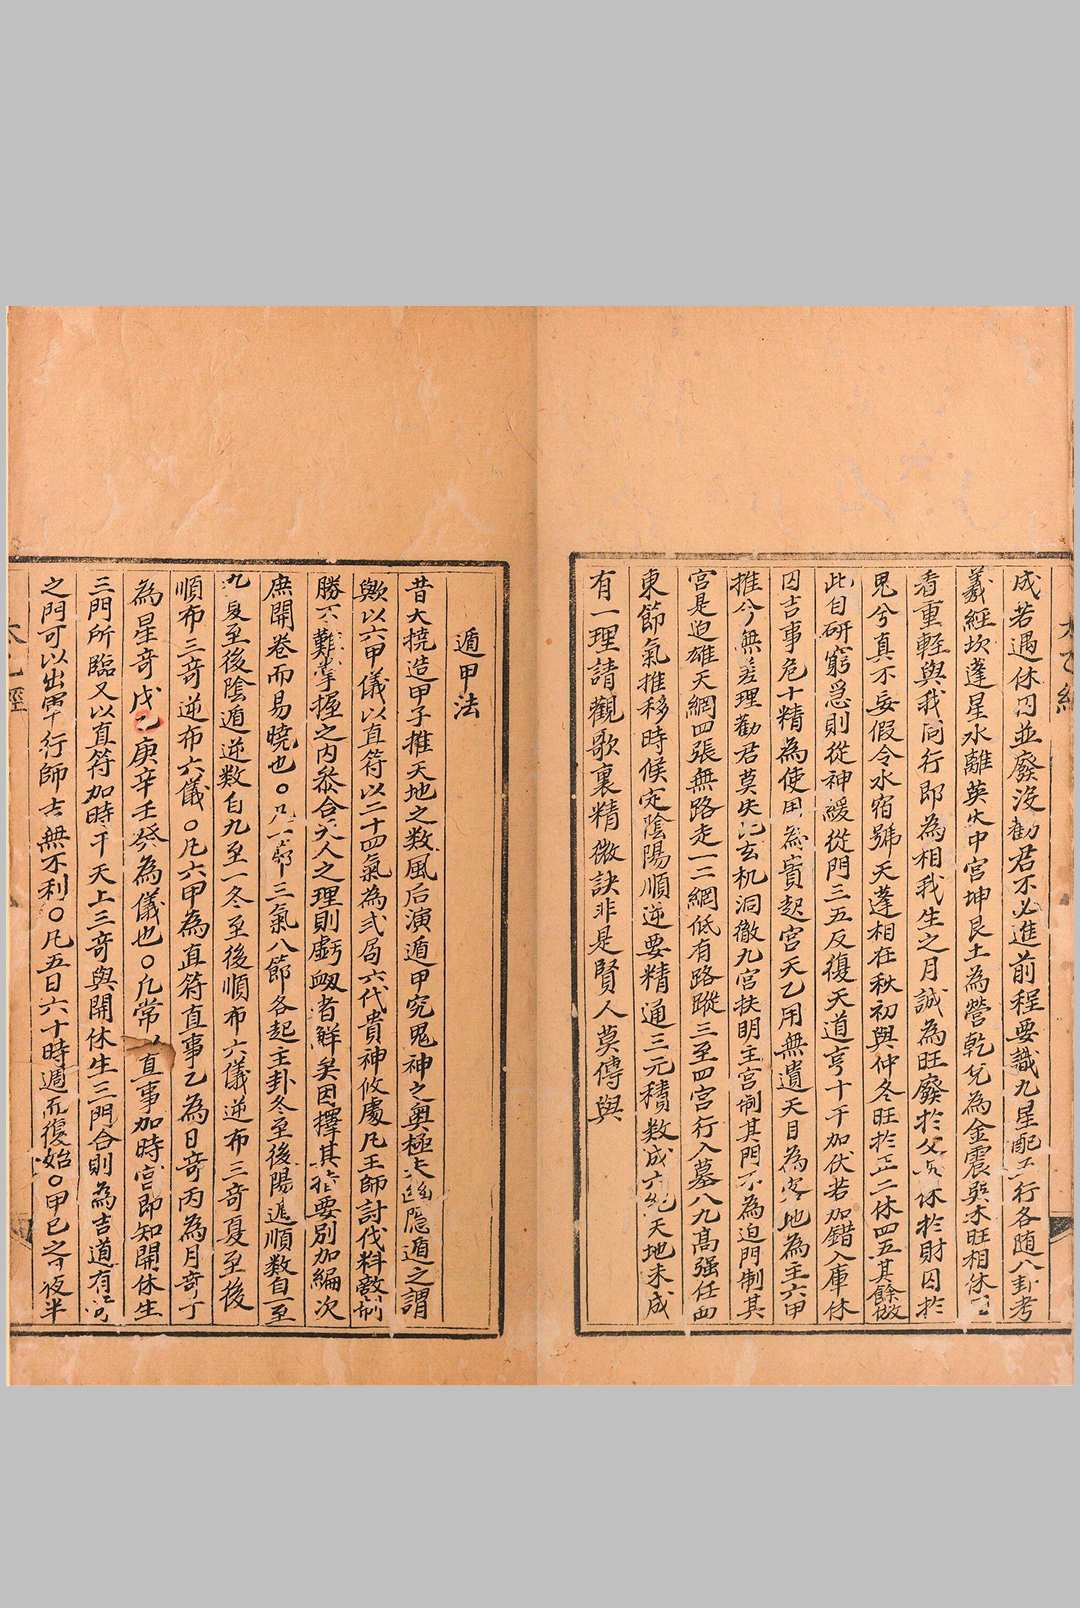 成若遇休囚並廢沒勸君不必進前程要識九星配五行各随八卦考
羲經坎蓬星水離英火中宮坤艮土為營乾兊為金震巽木旺相休囚
看重輕與我同行即為相我生之月誠為旺廢於父母休於財囚於
鬼兮真不妄假令水宿號天蓬相在秋初與仲冬旺於正二休四五其餘倣
此自研窮急則從神緩從門三五反復天道亨十干加伏若加錯入庫休
囚吉事危十精為使用為貴起宮天乙用無遺天目為客地為主六甲
推兮無差理勸君莫失此玄机洞徹九宮扶明主宮制其門不為迫門制其
宮是迫雄天網四張無路走一二網低有路蹤三至四宮行入墓八九高强任西
東節氣推移時候定陰陽順逆要精通三元積数成六紀天地未成
有一理請觀歌裏精微訣非是賢人莫傳與
遁甲法
昔大撓造甲子推天地之数風后演遁甲究鬼神之奧極夫幽隠遁之謂
歟以六甲儀以直符以二十四氣為弍局六代貴神攸處凡王師討伐料敵制
勝不難掌握之内叅合天人之理則虧衂者鮮矣因擇其指要别加編次
庶開卷而易曉也〇凡一節三氣八節各起主卦冬至後陽遁順数自一至
九夏至後陰遁逆数自九至一冬至後順布六儀逆布三奇夏至後
順布三奇逆布六儀〇凡六甲為直符直事乙為日奇丙為月奇丁
為星奇戊己庚辛壬癸為儀也〇凡常以直事加時宮即知開休生
三門所臨又以直符加時干天上三奇與開休生三門合則為吉道有
之門可以出軍行師吉無不利〇凡五日六十時週而復始〇甲己之日夜半